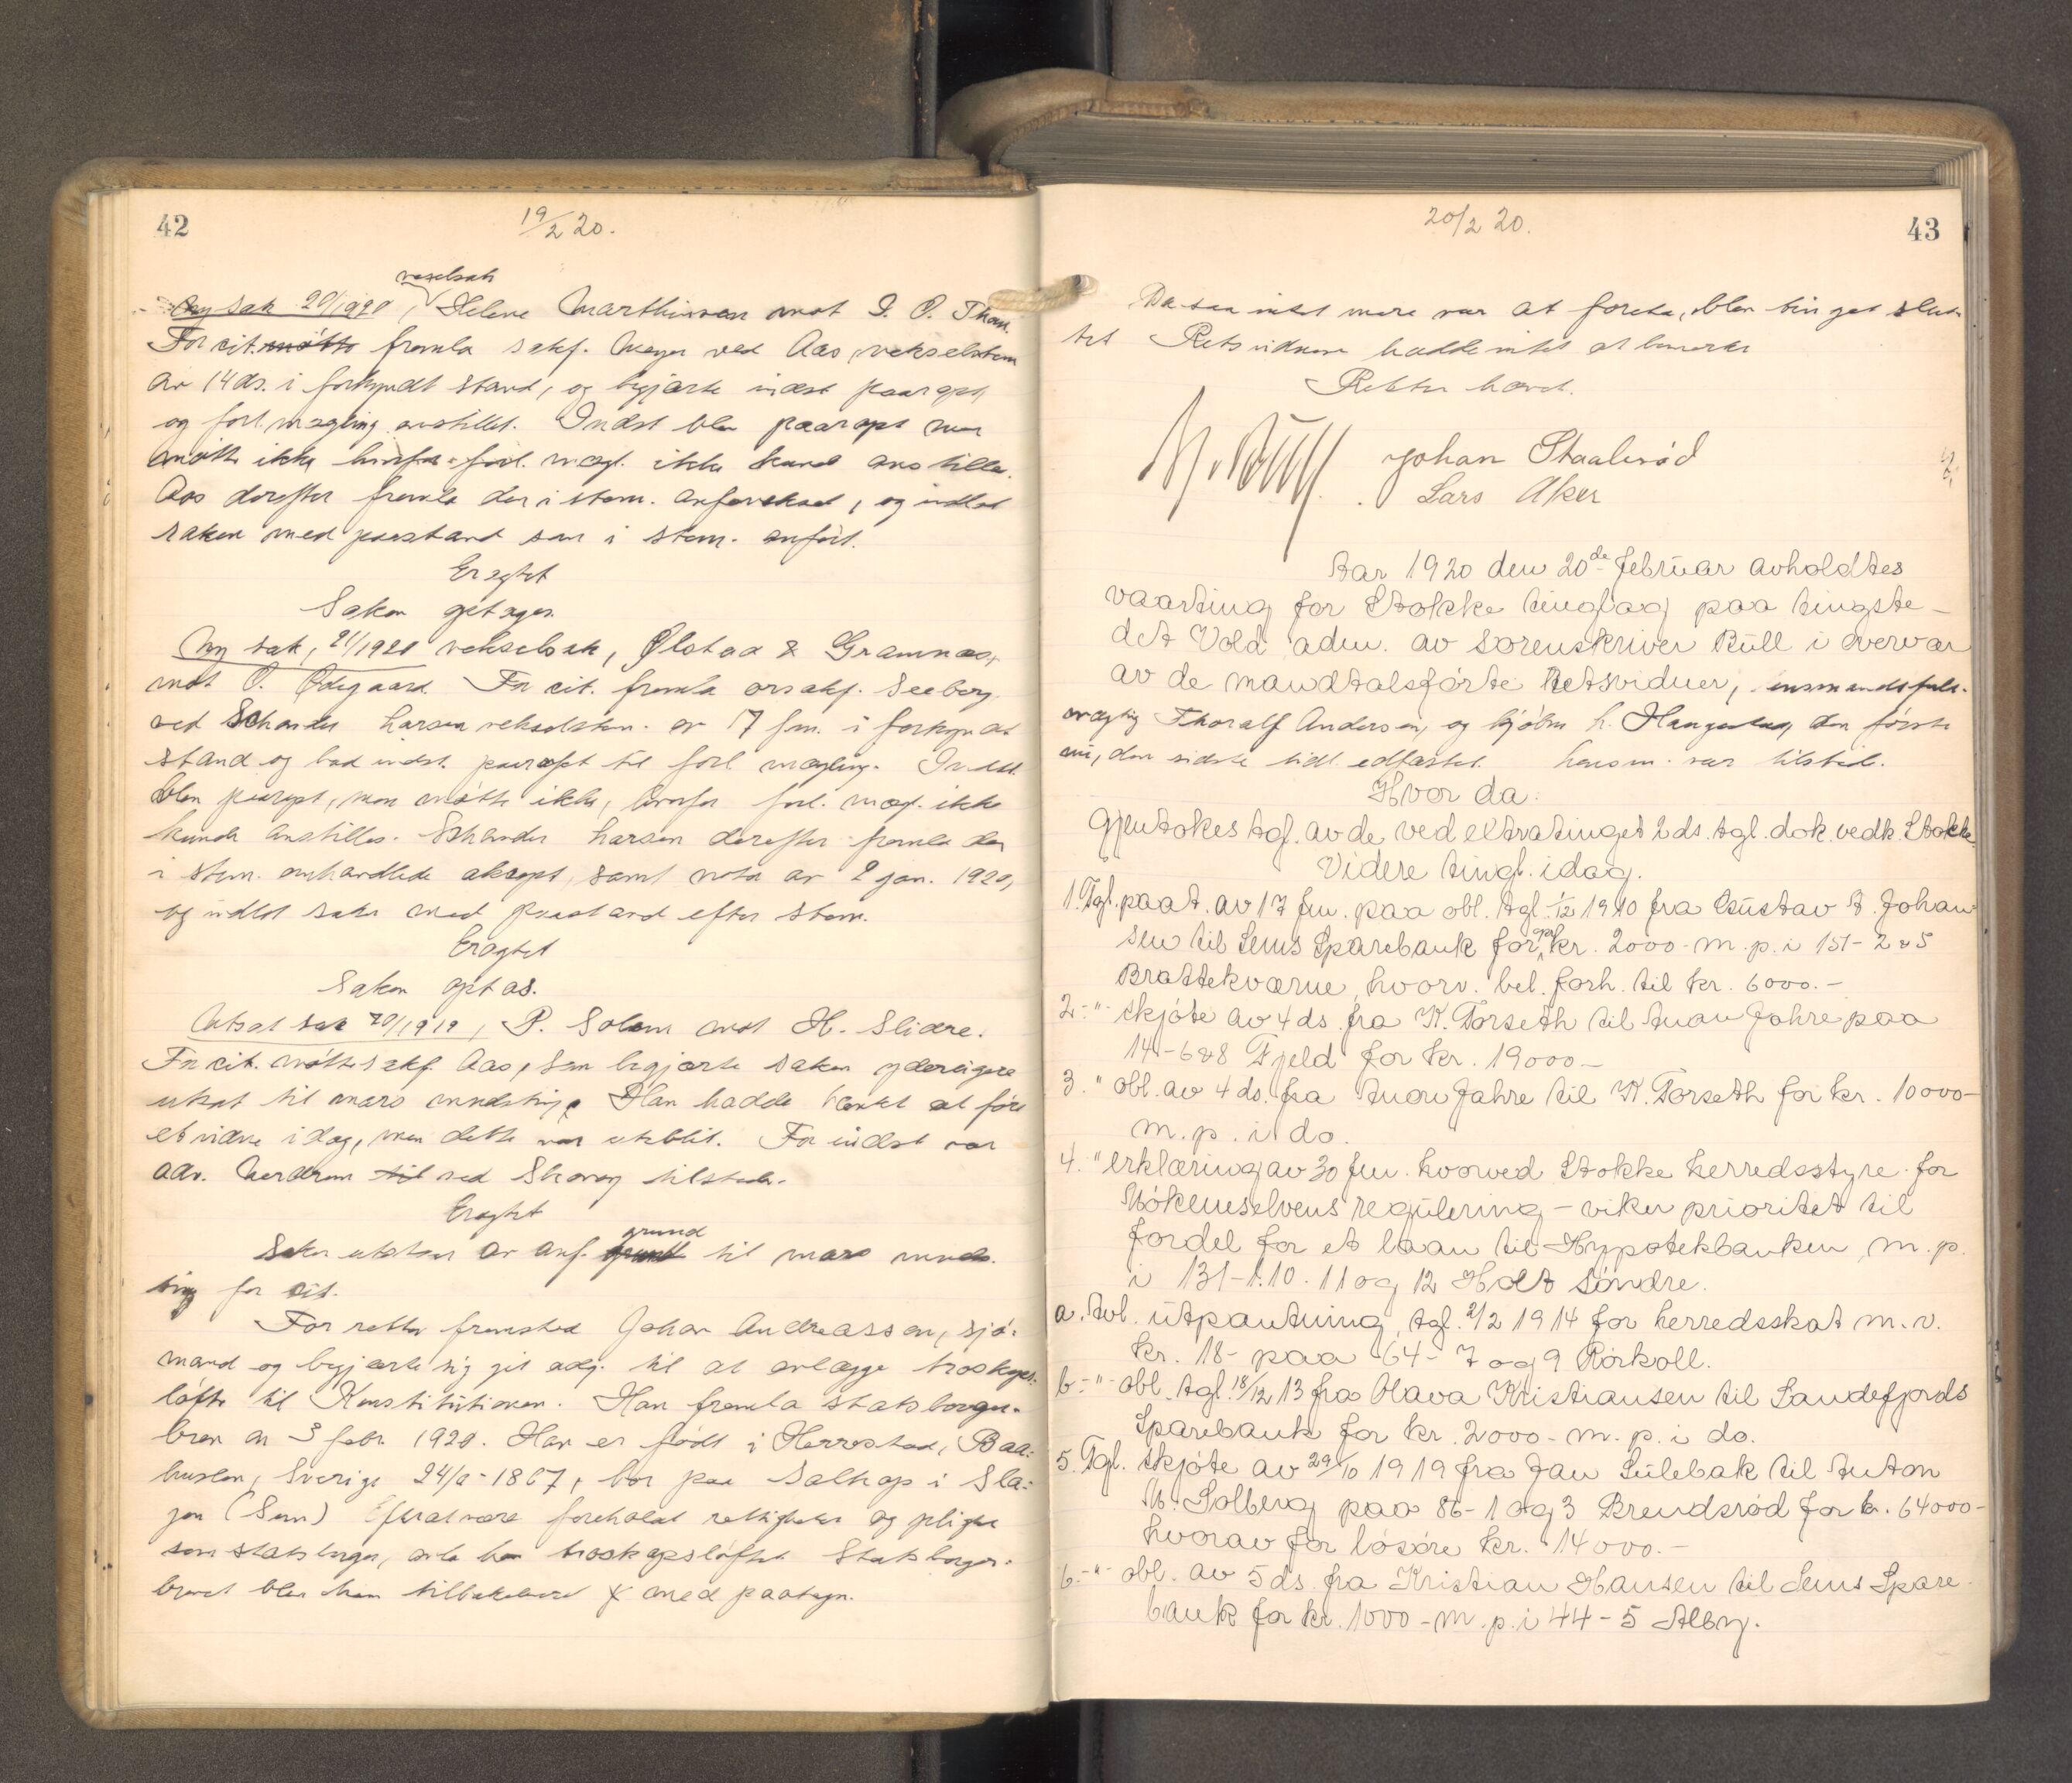 42
19/2 20.
vexelsak
Ny sak 20/1920, Helene Marthinsen mot I. O. Thon.
For cit. møtte fremla sakf. Meyer ved Aas, vekselstem
av 14 ds. i forkyndt stand, og begjærte indst paaropt,
og forl. mægling anstillet. Indst blev paaropt men
møtte ikke hvorfor forl. mægl. ikke kunde anstilles.
Aas derefter fremla den i stem. anf. veksel, og indlot
saken med paastand som i stem. anført.
Eragtet
Saken optages.
Ny sak, 21/1920 vekselsak, Ølstad & Gramnæs,
mot O. Ødegaard. For cit. fremla orsakf. Seeberg
ved Schander Larsen vekselstem. av 17 jan. i forkyndt
stand og bad indst. paaropt til forl. mægling. Indst.
blev paaropt, men møtte ikke, hvorfor forl. mægl. ikke
kunde anstilles. Schander Larsen derefter fremla den
i stem. omhandlede aksept, samt nota av 2 jan. 1920,
og indlot saken med paastand efter stem.
Eragtet
Saken optas.
Utsat sak 70/1919, P. Solem mot H. Slidre.
For cit. møtte sakf. Aas, som begjærte saken yderligere
utsat til mars maanedsting. Han hadde tænkt at føre
et vidne idag, men dette var uteblit. For indst var
adv. Werdrum til ved Skovog tilstede.
Eragtet
grund
Saken utsettes av anf. grund til mars maaneds-
ting for cit.
For retten fremstod Johan Andreassen, sjø-
mand og begjærte sig git adg. til at avlægge troskaps-
løfte til Konstitutionen. Han fremla statsborger-
brev av 3 febr. 1920. Han er født i Herrestad, Baa-
huslen, Sverige 24/9-1867, bor paa Saltkop i Sla-
gen (Sem) Efterat være foreholdt rettigheter og pligter
som statsborger, avla han troskapsløftet. Statsborger-
brevet blev ham tilbakelevert med paategn.
43
20/2 20.
Da der intet mere var at foreta, blev tinget slut-
tet Retsvidnene hadde intet at bemerke
Retten hævet.
Johan Staalerød
Lars Aker
Aar 1920 den 20de februar avholdtes
vaarting for Stokke tinglag paa tingste-
det Vold adm. av sorenskriver Büll i overvær
av de mandtalsførte Retsvidner, lensmandsfuld-
mægtig Thoralf Andersen, og kjøbm h. Haugestag, den første
nu, den sidste tidl. edfæstet. Lensm. var tilstede.
Hvor da:
Gjentokes tgl. av de ved extratinget 2 ds. tgl. dok. vedk. Stokke
Videre tingl. idag.
1. Tgl. paat. av 17 jan. paa obl. tgl. 1/12 1910 fra Gustav A. Johan
sen til Sems Sparebank for opr kr. 2000 - m. p. i 151 - 2 & 5
Brattekværne, hvorv. bel. forh. til kr. 6000.-
2.-"- skjøte av 4 ds. fra K. Torseth til Anon Jahre paa
14 - 6 & 8 Fjeld for kr. 19000 -
3. " obl. av 4 ds. fra Anon Jahre til K. Torseth for kr. 10000-
m. p. i do.
4. " erklæring av 30 jan. hvorved Stokke herredsstyre - for
Møkenselvens regulering - viker prioritet til
fordel for et laan til Hypotekbanken m. p.
i 131 - 1. 10. 11 og 12 Holt søndre.
a. Avl. utpantning, tgl. 2/2 1914 for herredsskat m. v.
kr. 18 - paa 64 - 7 og 9 Rørkoll.
b.-"- obl. tgl. 18/12 13 fra Olava Kristiansen til Sandefjords
Sparebank for kr. 2000 - m. p. i do.
5. Tgl. skjøte av 29/10 1919 fra Jan Sulebak til Anton
M. Solberg paa 86 - 1 og 3 Brendsrød for kr. 64000-
hvorav for løsøre kr. 14000.-
6.-"- obl. av 5 ds. fra Kristian Hansen til Sems Spare
bank for kr. 1000 - m. p. i 44 - 5 Alby.